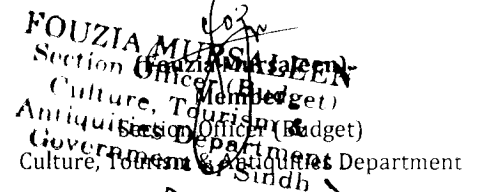 FOUZIA MURSALEEN
Section Officer (Budget)
Culture, Tourism &
Antiquities Department
Government of Sindh
(Fouzia Mursaleen)
Member
Section Officer (Budget)
Culture, Tourism & Antiquities Department